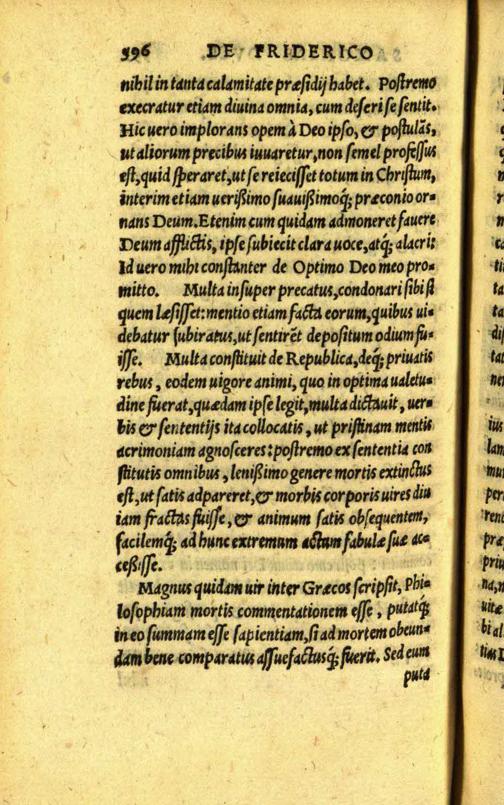 396 DE FRIDERICO
nihil in tanta calamitate præsidij habet. Postremo
execratur etiam diuina omnia, cum deseri se sentit.
Hic uero implorans opem à Deo ipso, & postulās,
ut aliorum precibus iuuaretur, non semel professus
est, quid speraret, ut se reiecisset totum in Christum,
interim etiam uerißimo suauißimoq́; præconio or-
nans Deum. Etenim cum quidam admoneret fauere
Deum afflictis, ipse subiecit clara uoce, atq́; alacri:
Id uero mihi constanter de Optimo Deo meo pro-
mitto. Multa insuper precatus, condonari sibi si
quem læsisset: mentio etiam facta eorum, quibus ui-
debatur subiratus, ut sentirēt depositum odium fu-
isse. Multa constituit de Republica, deq́; priuatis
rebus, eodem uigore animi, quo in optima ualetu-
dine fuerat, quædam ipse legit, multa dictauit, uer-
bis & sententijs ita collocatis, ut pristinam mentis
acrimoniam agnosceres: postremo ex sententia con
stitutis omnibus, lenißimo genere mortis extinctus
est, ut satis adpareret, & morbis corporis uires diu
iam fractas fuisse, & animum satis obsequentem,
facilemq́; ad hunc extremum actum fabulæ suæ ac-
ceßisse.
Magnus quidam uir inter Græcos scripsit, Phi-
losophiam mortis commentationem esse, putatq́;
in eo summam esse sapientiam, si ad mortem obeun-
dam bene comparatus assuefactusq́; fuerit. Sed eum
puta